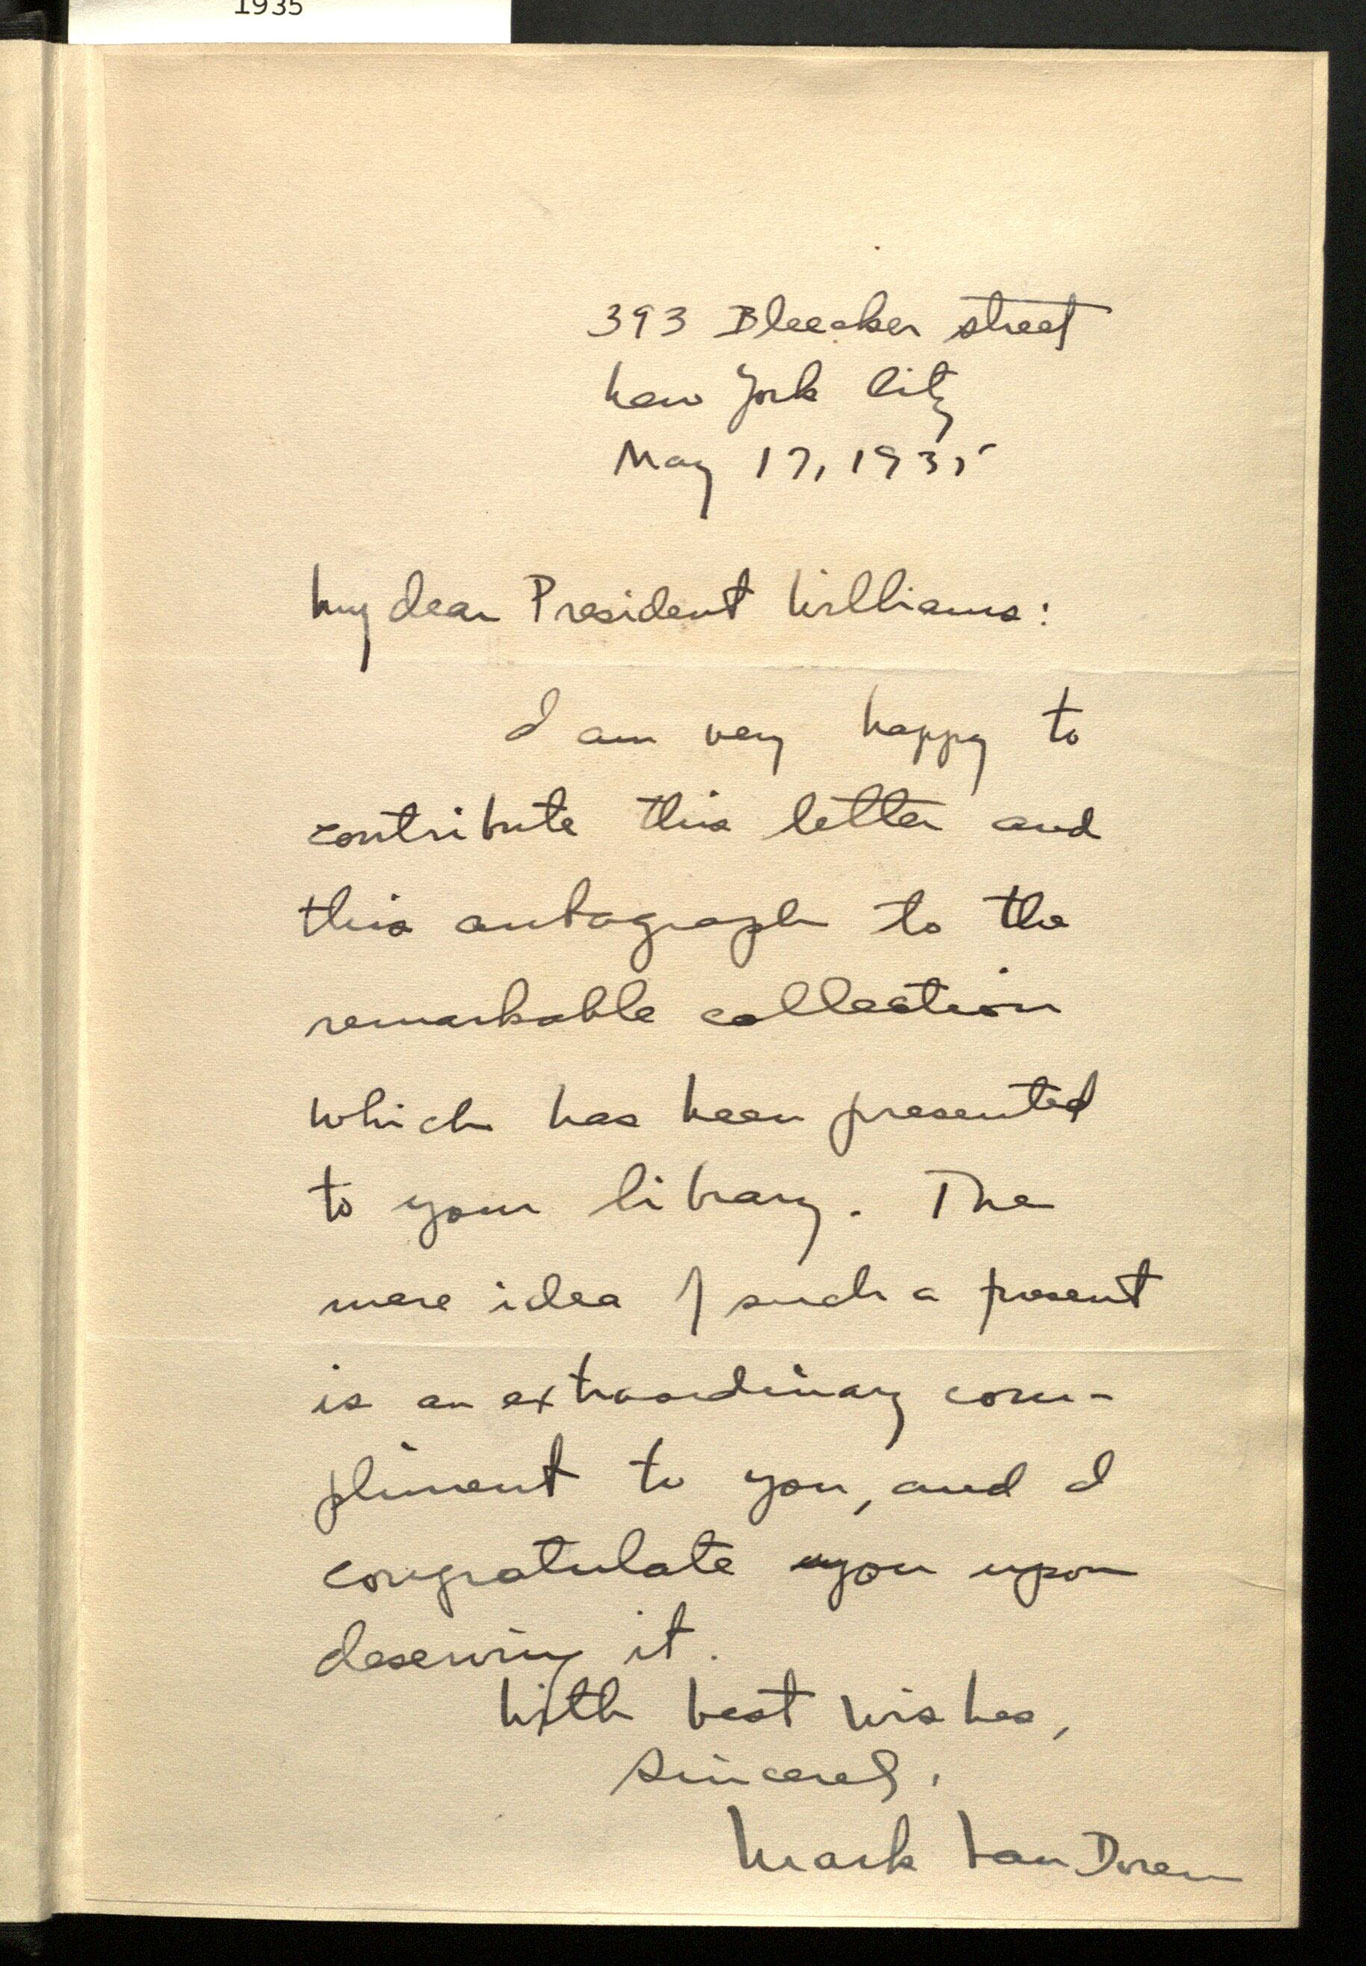 1935
393 Bleecker street
New York City
May 17, 1935
My dear President Williams:
I am very happy to
contribute this letter and
this autograph to the
remarkable collection
which has been presented
to your library. The
mere idea of such a present
is an extraordinary com-
pliment to you, and I
congratulate you upon
deserving it.
With best wishes,
Sincerely,
Mark Van Doren